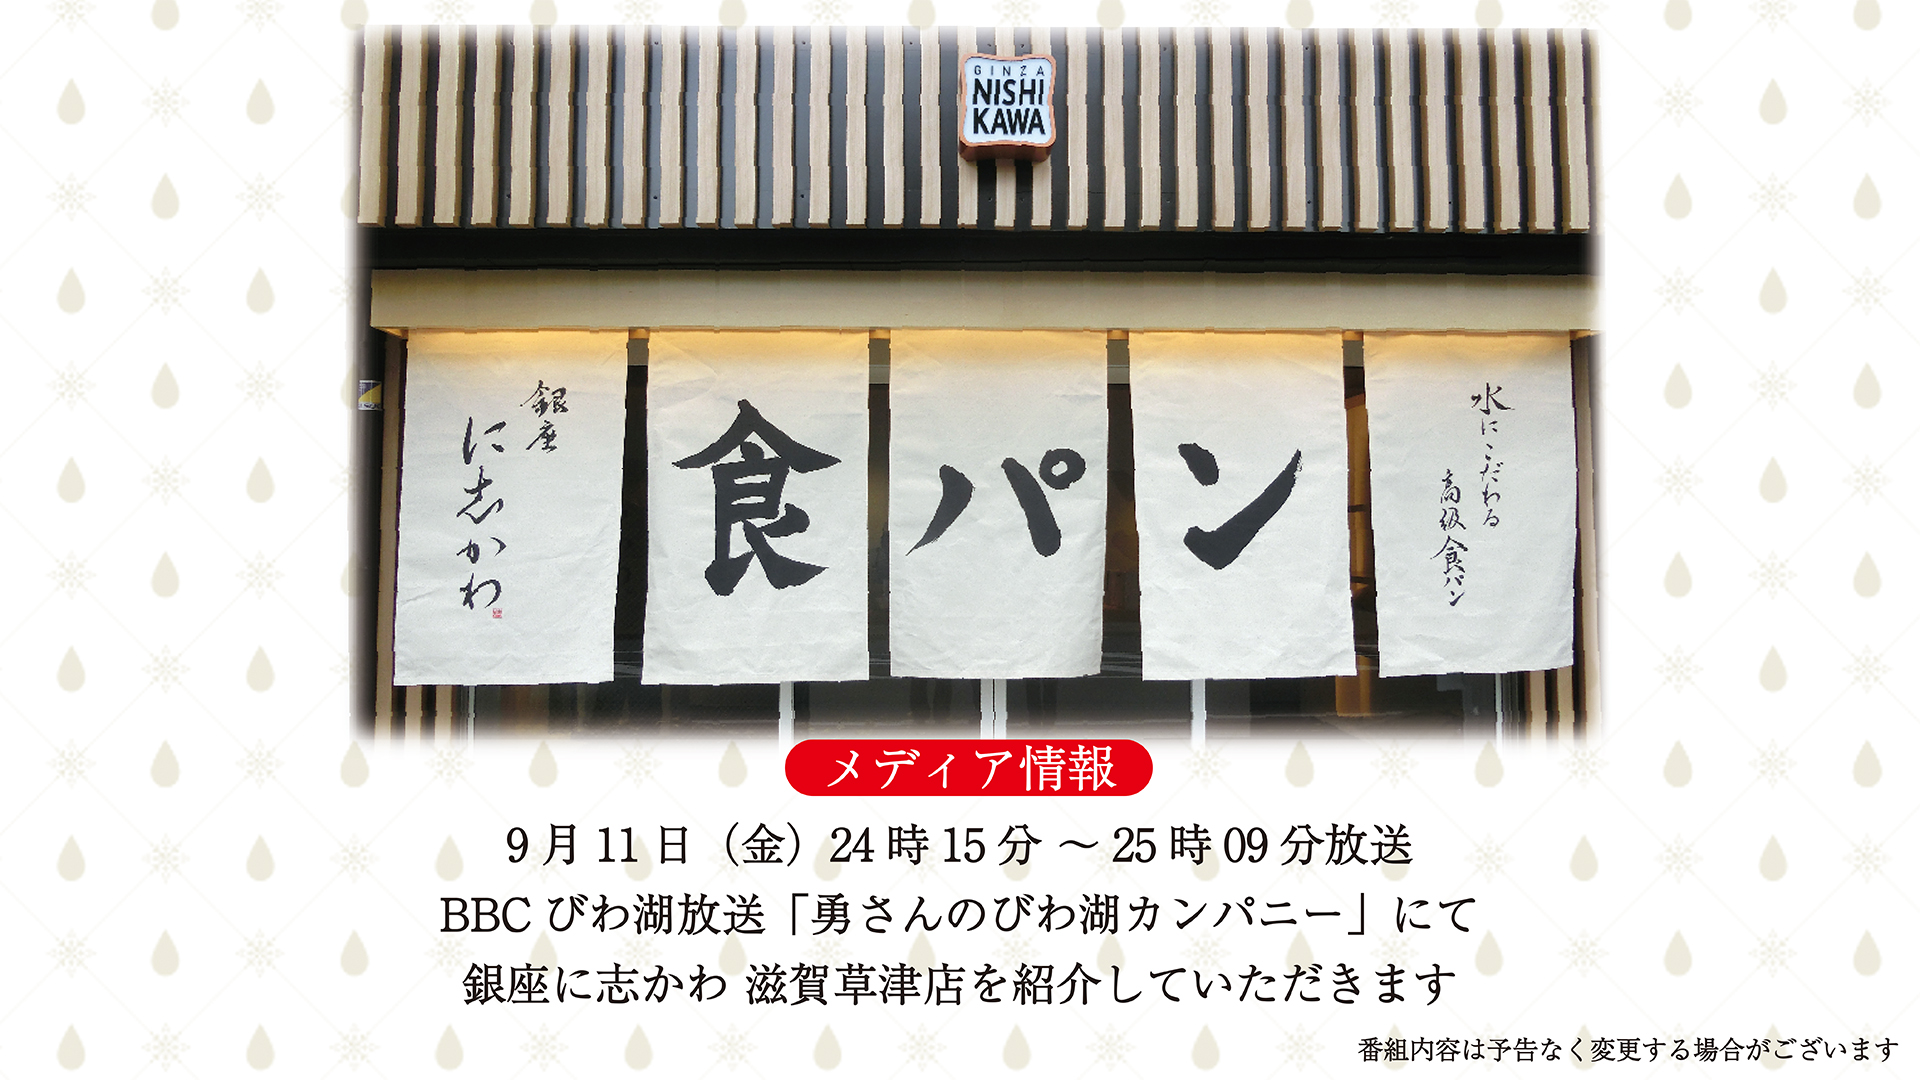 GINZA
NISHI
KAWA
銀座
に志かわ
食パン
水にこだわる
高級食パン
メディア情報
9月11日（金）24時15分 ～ 25時09分放送
BBCびわ湖放送「勇さんのびわ湖カンパニー」にて
銀座に志かわ 滋賀草津店を紹介していただきます
番組内容は予告なく変更する場合がございます